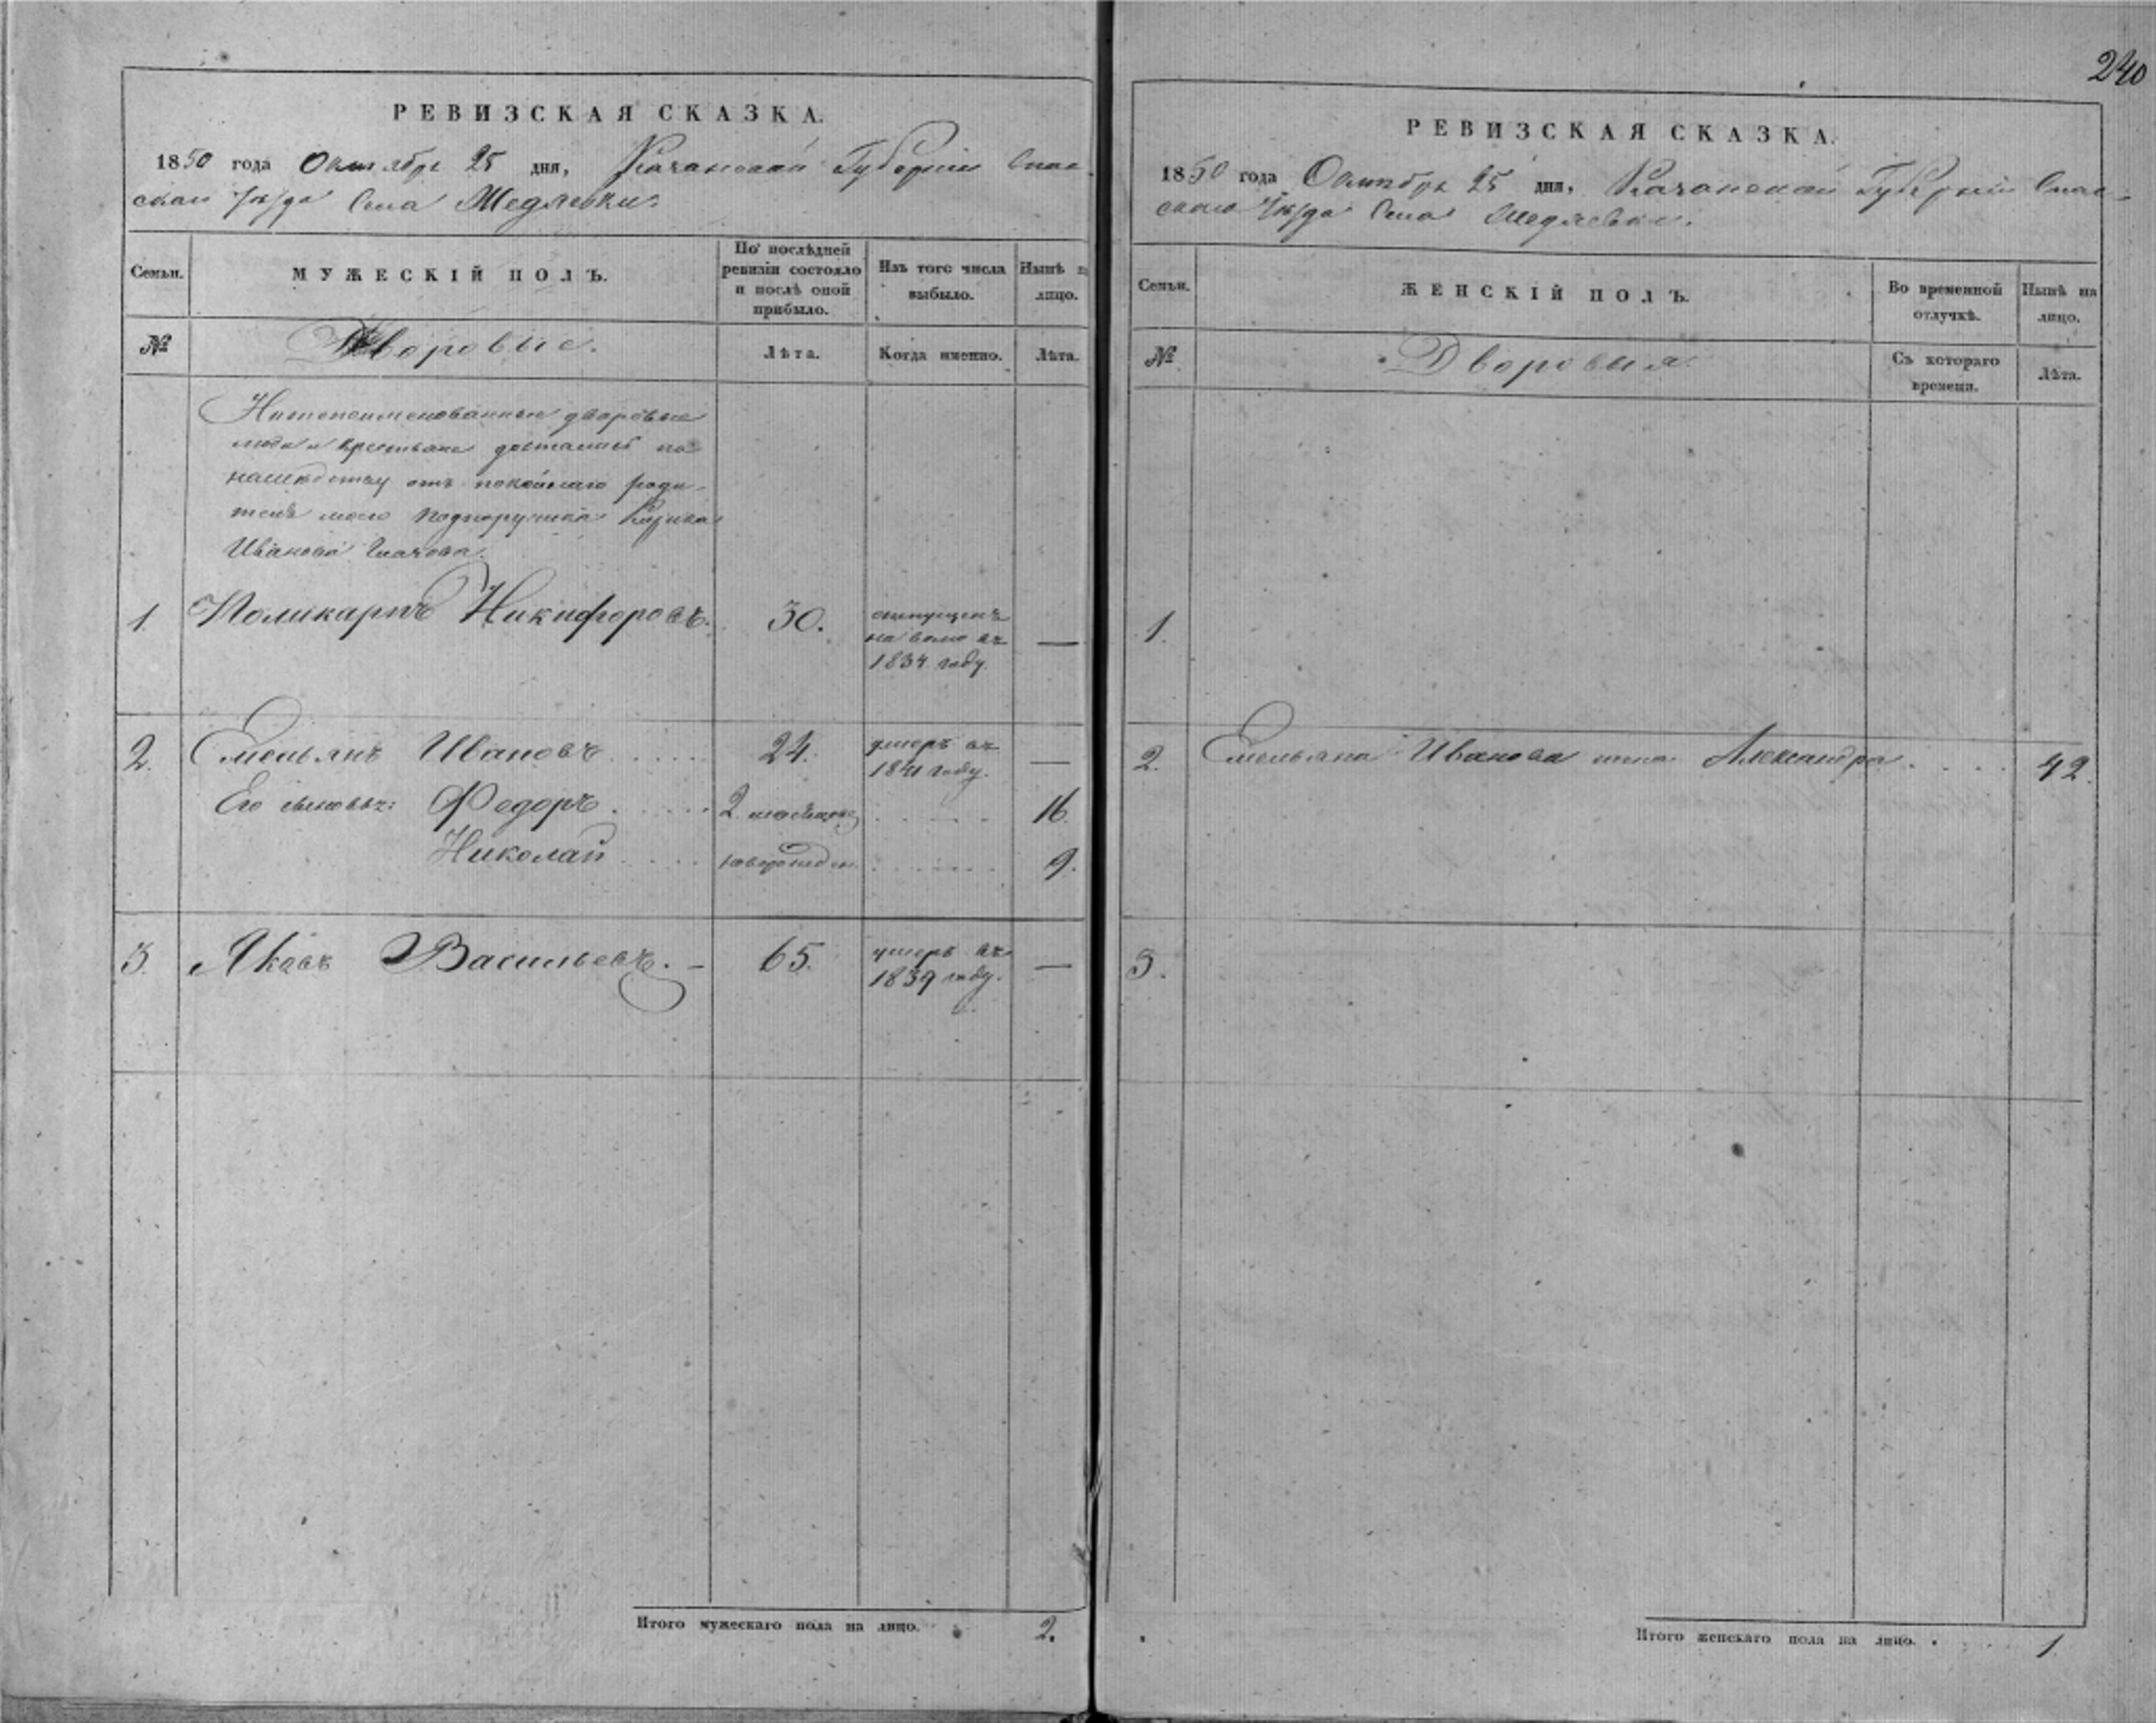 240
РЕВИЗСКАЯ СКАЗКА.
1850 года Октября 25 дня, Казанской Губернiи Спас-
скаго Уѣзда Села
Семьи.
МУЖЕСКIЙ ПОЛЪ.
По послѣдней ревизiи состояло и послѣ оной прибыло.
Изъ того числа выбыло.
Нынѣ на лицо.
№
Дворовые.
Лѣта.
Когда именно.
Лѣта.
Нижепоименованные дворовые
люди и крестьяне достались по
наслѣдству отъ покойнаго роди-
теля моего подпоручика
Иванова
1. Поликарпъ Никифоровъ. 30. отпущенъ на волю въ 1834 году. —
2. Емельянъ Ивановъ ..... 24. умеръ въ 1841 году. —
Его сыновья: Федоръ ..... 2 мѣсяцовъ ..... 16.
Николай .... новорожден. ..... 9.
3. Яковъ Васильевъ. — 65. умеръ въ 1839 году. —
Итого мужескаго пола на лицо. 2.
РЕВИЗСКАЯ СКАЗКА.
1850 года Октября 25 дня, Казанской Губернiи Спас-
скаго Уѣзда Села
Семьи.
ЖЕНСКIЙ ПОЛЪ.
Во временной отлучкѣ.
Нынѣ на лицо.
№
Дворовыя
Съ котораго времени.
Лѣта.
1.
2. Емельяна Иванова жена Александра .... 42.
3.
Итого женскаго пола на лицо. 1